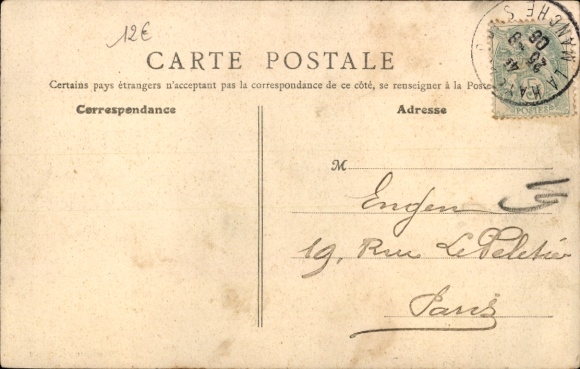 12€
CARTE POSTALE
Certains pays étrangers n'acceptant pas la correspondance de ce côté, se renseigner à la Poste
Correspondance
Adresse
M
Engen
19, Rue Le Peletier
Paris
LA HAYE
MANCHE
25
06
POSTES